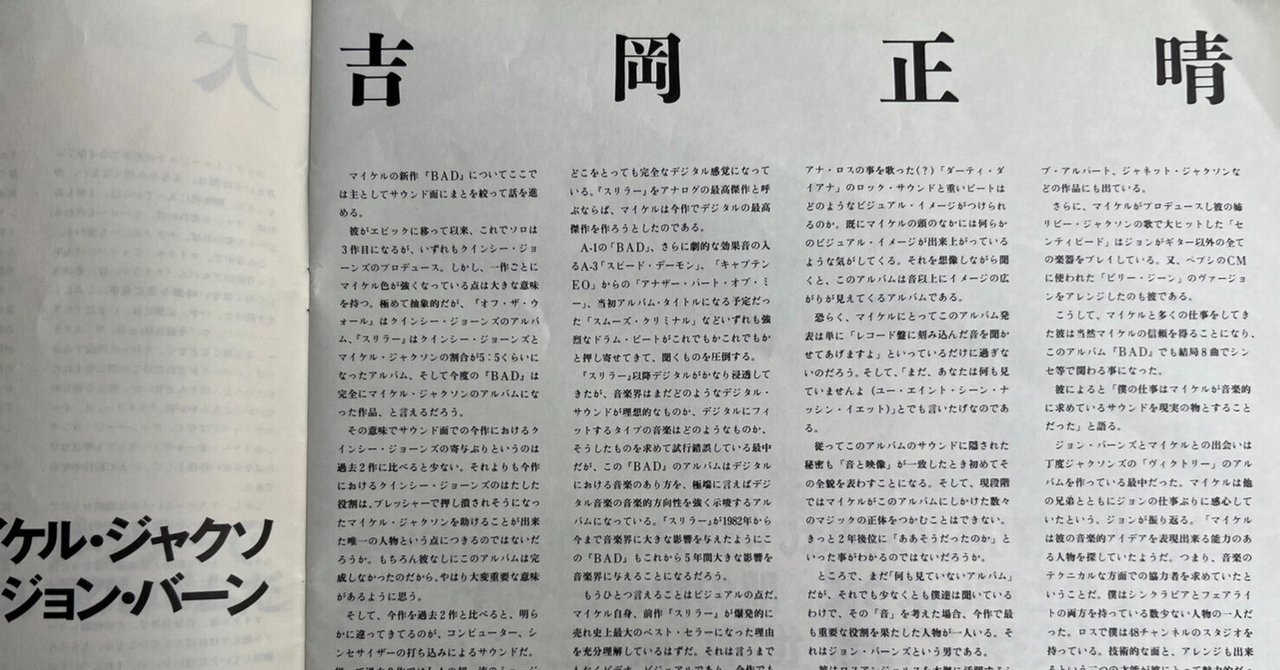 吉岡正晴
イケル・ジャクソ
ジョン・バーン
マイケルの新作『BAD』についてここで
は主としてサウンド面にまとを絞って話を進
める。
彼がエピックに移って以来、これでソロは
3作目になるが、いずれもクインシー・ジョ
ーンズのプロデュース。しかし、一作ごとに
マイケル色が強くなっている点は大きな意味
を持つ。極めて抽象的だが、『オフ・ザ・ウ
ォール』はクインシー・ジョーンズのアルバ
ム、『スリラー』はクインシー・ジョーンズと
マイケル・ジャクソンの割合が5:5くらいに
なったアルバム、そして今度の『BAD』は
完全にマイケル・ジャクソンのアルバムにな
った作品、と言えるだろう。
その意味でサウンド面での今作におけるク
インシー・ジョーンズの寄与ぶりというのは
過去2作に比べると少ない。それよりも今作
におけるクインシー・ジョーンズのはたした
役割は、プレッシャーで押し潰されそうになっ
たマイケル・ジャクソンを助けることが出来
た唯一の人物という点につきるのではないだ
ろうか。もちろん彼なしにこのアルバムは完
成しなかったのだから、やはり大変重要な意味
があるように思う。
そして、今作を過去2作と比べると、明ら
かに違ってきてるのが、コンピューター、シ
ンセサイザーの打ち込みによるサウンドだ。
どこをとっても完全なデジタル感覚になって
いる。『スリラー』をアナログの最高傑作と呼
ぶならば、マイケルは今作でデジタルの最高
傑作を作ろうとしたのである。
A-1の「BAD」、さらに劇的な効果音の入
るA-3「スピード・デーモン」、「キャプテン
EO」からの「アナザー・パート・オブ・ミ
ー」、当初アルバム・タイトルになる予定だっ
た「スムーズ・クリミナル」などいずれも強
烈なドラム・ビートがこれでもかこれでもか
と押し寄せてきて、聞くものを圧倒する。
『スリラー』以降デジタルがかなり浸透して
きたが、音楽界はまだどのようなデジタル・
サウンドが理想的なものか、デジタルにフィ
ットするタイプの音楽はどのようなものか、
そうしたものを求めて試行錯誤している最中
だが、この『BAD』のアルバムはデジタル
における音楽のあり方を、極端に言えばデジ
タル音楽の音楽的方向性を強く示唆するアル
バムになっている。『スリラー』が1982年から
今まで音楽界に大きな影響を与えたようにこ
の『BAD』もこれから5年間大きな影響を
音楽界に与えることになるだろう。
もうひとつ言えることはビジュアルの点だ。
マイケル自身、前作『スリラー』が爆発的に
売れ史上最大のベスト・セラーになった理由
を充分理解しているはずだ。それは言うまで
アナ・ロスの事を歌った(?)「ダーティ・ダ
イアナ」のロック・サウンドと重いビートは
どのようなビジュアル・イメージがつけられ
るのか。既にマイケルの頭のなかには何らか
のビジュアル・イメージが出来上がっている
ような気がしてくる。それを想像しながら聞
くと、このアルバムは音以上にイメージの広
がりが見えてくるアルバムである。
恐らく、マイケルにとってこのアルバム発
表は単に「レコード盤に刻み込んだ音を聞か
せてあげますよ」といっているだけに過ぎな
いのだろう。そして、「まだ、あなたは何も見
ていませんよ(ユー・エイント・シーン・ナ
ッシン・イエット)」とでも言いたげなのであ
る。
従ってこのアルバムのサウンドに隠された
秘密も「音と映像」が一致したとき初めてそ
の全貌を表わすことになる。そして、現段階
ではマイケルがこのアルバムにしかけた数々
のマジックの正体をつかむことはできない。
きっと2年後位に「ああそうだったのか」と
いった事がわかるのではないだろうか。
ところで、まだ「何も見ていないアルバム」
だが、それでも少なくとも僕達は聞いている
わけで、その「音」を考えた場合、今作で最
も重要な役割を果たした人物が一人いる。そ
れはジョン・バーンズという男である。
ブ・アルパート、ジャネット・ジャクソンな
どの作品にも出ている。
さらに、マイケルがプロデュースし彼の姉
リビー・ジャクソンの歌で大ヒットした「セ
ンティピード」はジョンがギター以外の全て
の楽器をプレイしている。又、ペプシのCM
に使われた「ビリー・ジーン」のヴァージョ
ンをアレンジしたのも彼である。
こうして、マイケルと多くの仕事をしてき
た彼は当然マイケルの信頼を得ることになり、
このアルバム『BAD』でも結局8曲でシン
セ等で関わる事になった。
彼によると「僕の仕事はマイケルが音楽的
に求めているサウンドを現実の物とすること
だった」と語る。
ジョン・バーンズとマイケルとの出会いは
丁度ジャクソンズの「ヴィクトリー」のアル
バムを作っている最中だった。マイケルは他
の兄弟とともにジョンの仕事ぶりに感心して
いたという。ジョンが振り返る。「マイケル
は彼の音楽的アイデアを表現出来る能力のあ
る人物を探していたようだ。つまり、音楽の
テクニカルな方面での協力者を求めていたと
いうことだ。僕はシンクラビアとフェアライ
トの両方を持っている数少ない人物の一人だ
った。ロスで僕は48チャンネルのスタジオを
持っている。技術的な面と、アレンジも出来